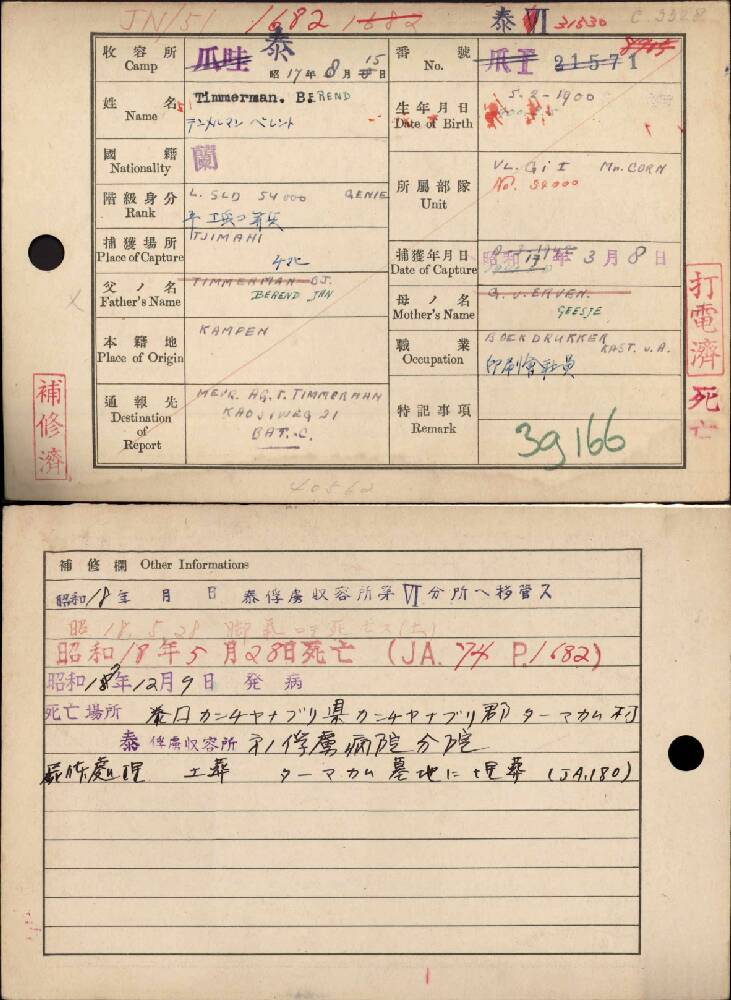 JN/51 1682 1682 泰VI 31530 C.3328
収容所 Camp 爪哇 泰 昭17年8月15日
番號 No. 爪I 21571
姓名 Name Timmerman. BEREND
テンメルマン ベレント
生年月日 Date of Birth 5-2-1900
國籍 Nationality 蘭
階級身分 Rank L. SLD 54000 GENIE
所属部隊 Unit VL. Gi I Mn. CORN
No. 54000
捕獲場所 Place of Capture TJIMAHI
捕獲年月日 Date of Capture 昭和17年3月8日
父ノ名 Father's Name TIMMERMAN BJ.
BEREND JAN
母ノ名 Mother's Name G. v. ERVEN.
GEESJE
本籍地 Place of Origin KAMPEN
職業 Occupation BOEKDRUKKER KAST. v. A.
印刷會社員
通報先 Destination of Report MEVR. AG. T. TIMMERMAN
KADJIWEG 21
BAT.-C.
特記事項 Remark 39166
打電濟
死亡
補修濟
40562
補修欄 Other Informations
昭和18年 月 日 泰俘虜収容所第VI分所ヘ移管ス
昭和18年5月28日死亡 (JA. 74 P.1682)
昭和18年12月9日 発病
死亡場所 泰国カンチヤナブリ県カンチヤナブリ郡ターマカム村
泰俘虜収容所 俘虜病院分院
屍体處理 土葬 ターマカム墓地に埋葬 (JA.180)